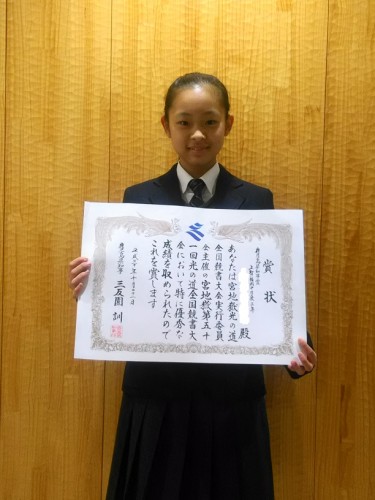 賞状
殿
あなたは宮地嶽光の道
全国競書大会実行委員
会主催の宮地嶽第五十
一回光の道全国競書大
会において特に優秀な
成績を収められたので
これを賞します
三友園 訓